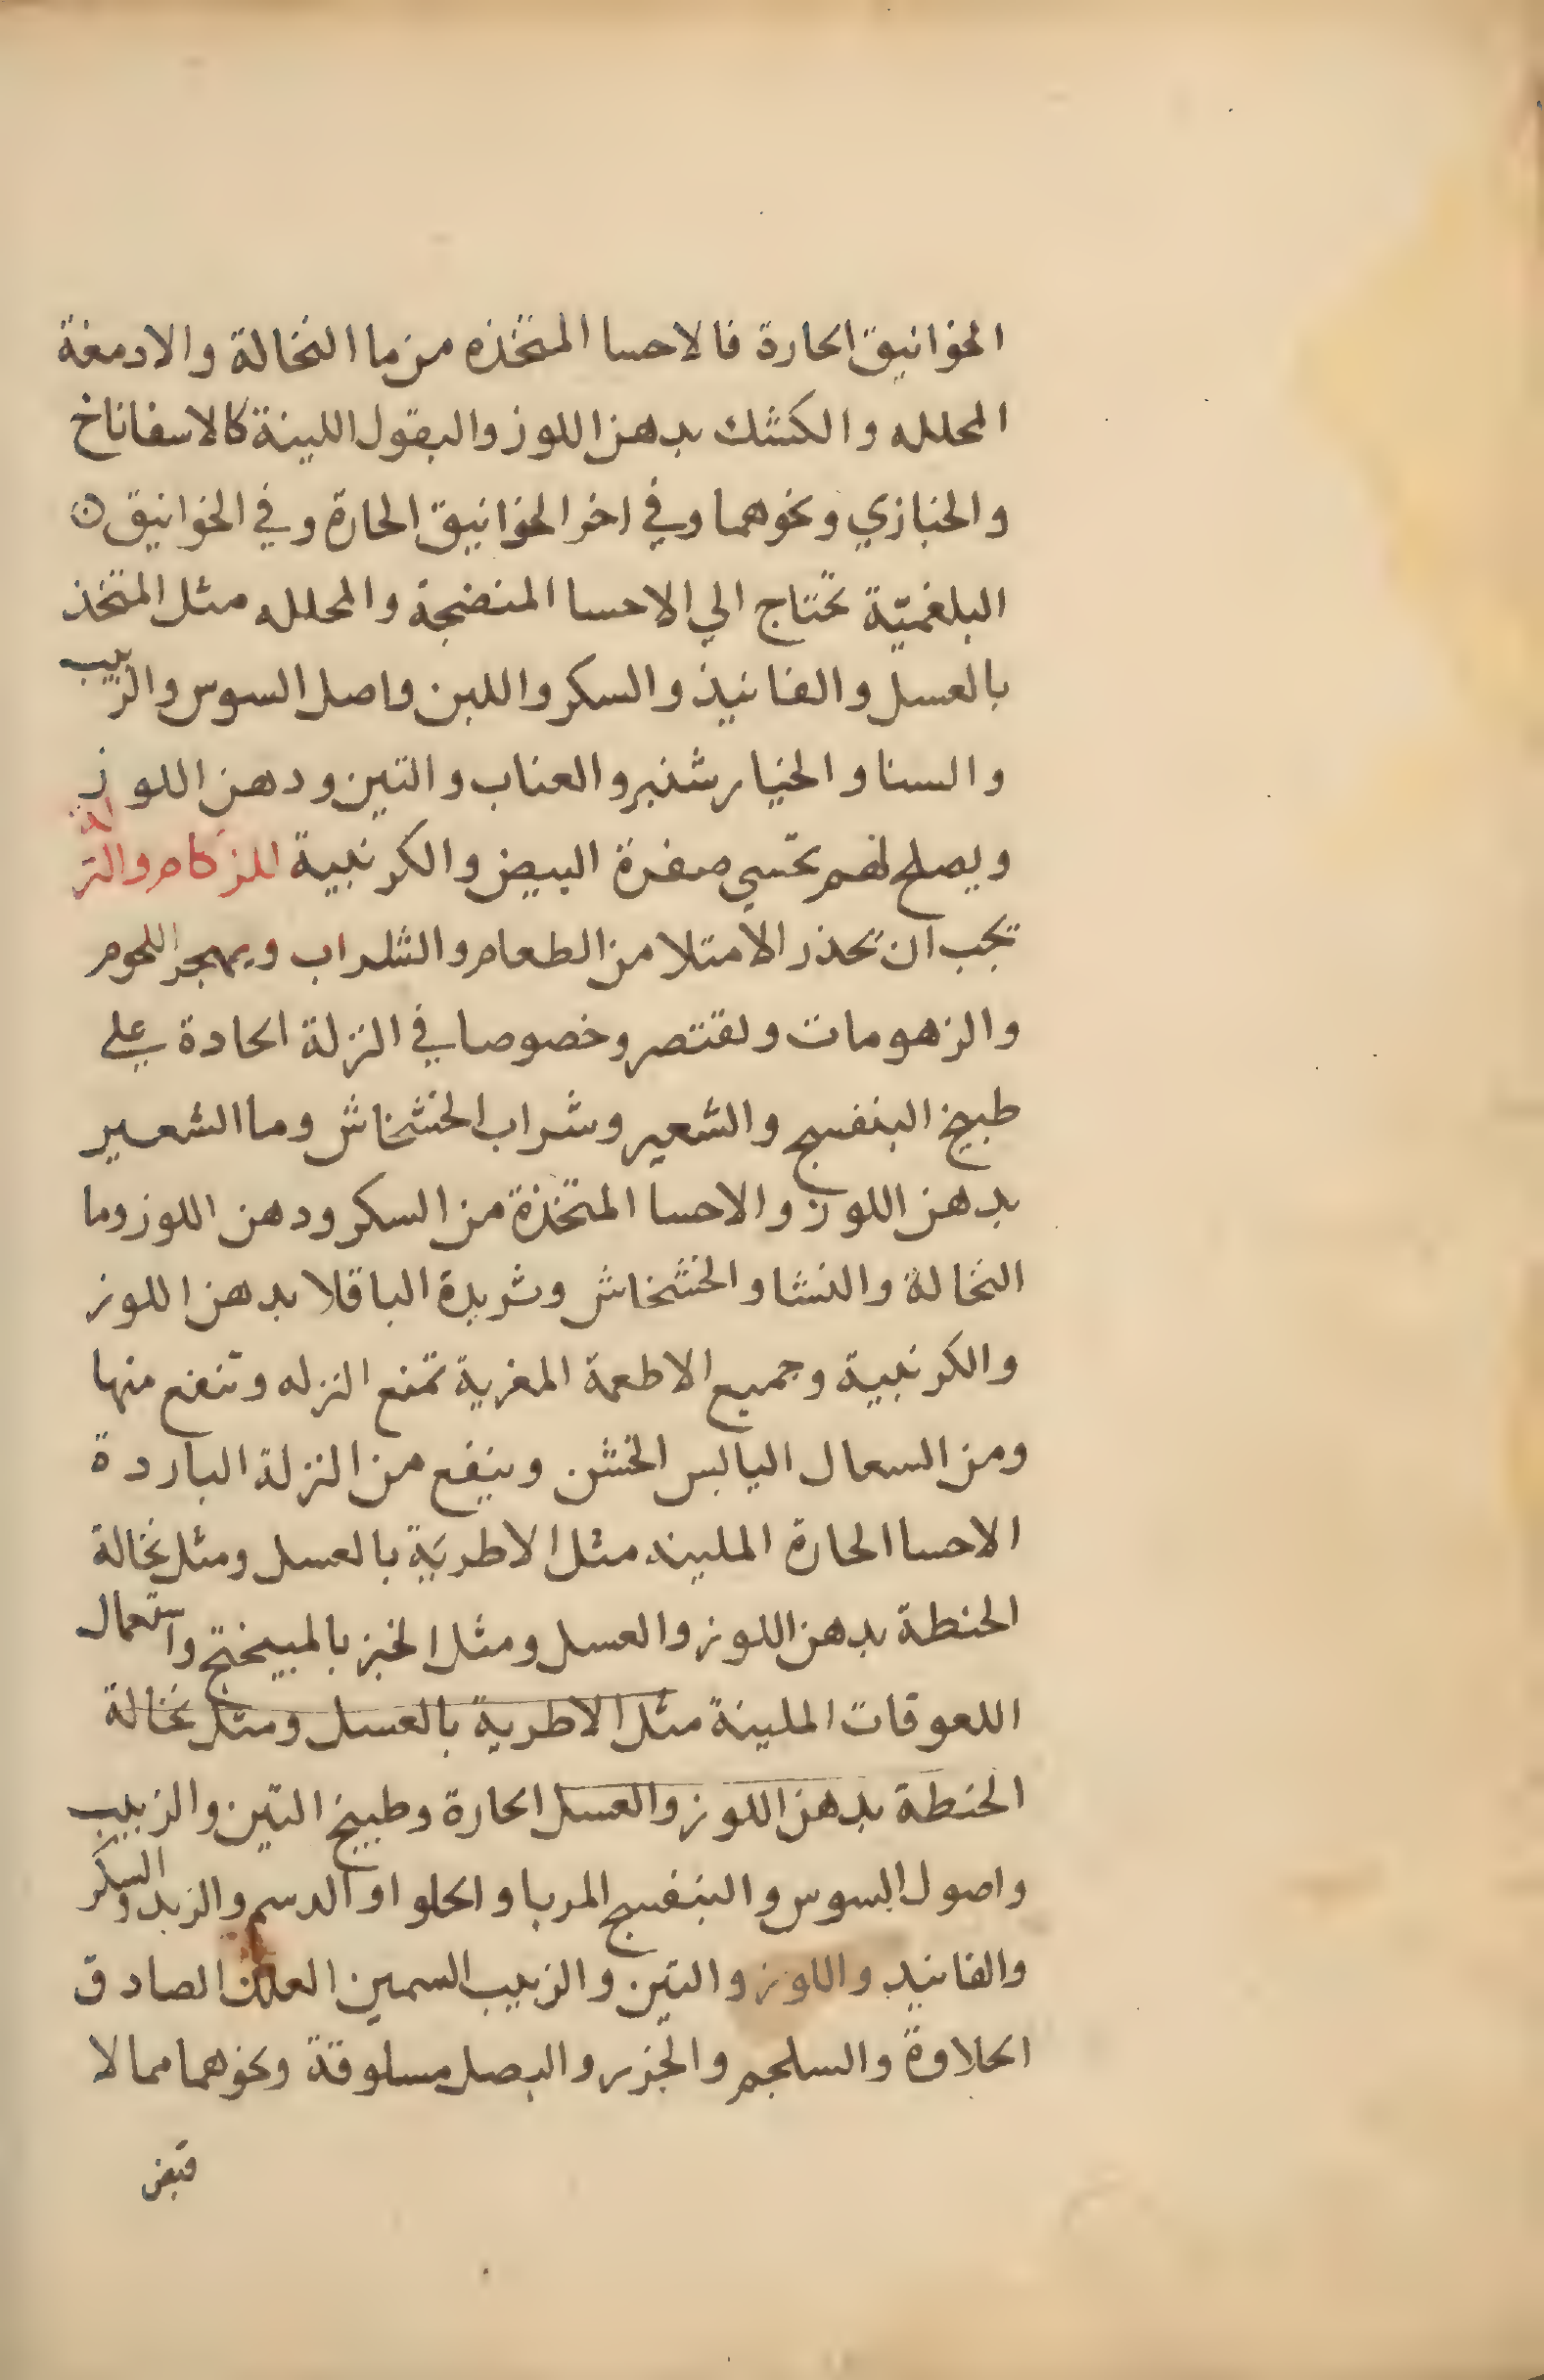 الخوانيق الحارة فالاحسا المتخذه من ما النخالة والادمغة
المحلله والكشك بدهن اللوز والبقول اللينة كالاسفاناخ
والخبازي ونحوهما وفي اخر الخوانيق الحارة وفي الخوانيق
البلغميّة تحتاج الي الاحسا المنضجة والمحلله مثل المتخذ
بالعسل والفانيذ والسكر واللبن واصل السوس والزبيب
والسنا والخيار شنبر والعناب والتين ودهن اللوز
ويصلح لهم تحسي صفرة البيض والكرنبية للزكام والنزلة
يجب ان تحذر الامتلا من الطعام والشراب ويهجر اللحوم
والزهومات ولقتصر وخصوصا في النزلة الحادة علي
طبيخ البنفسج والشعير وشراب الخشخاش وما الشعير
بدهن اللوز والاحسا المتخذة من السكر ودهن اللوز وما
النخالة والنشا والخشخاش وثريدة الباقلا بدهن اللوز
والكرنبية وجميع الاطعمة المغرية تمنع النزله وتنفع منها
ومن السعال اليابس الخشن وينفع من النزلة الباردة
الاحسا الحارة الملينه مثل الاطرية بالعسل ومثل نخالة
الحنطة بدهن اللوز والعسل ومثل الخبز بالميبختج واستعمال
اللعوقات الملينة مثل الاطرية بالعسل ومثل نخالة
الحنطة بدهن اللوز والعسل الحارة وطبيخ التين والزبيب
واصول السوس والبنفسج المربا والحلوا والدسم والزبد والسكر
والفانيد واللوز والتين والزبيب السمين العلك الصادق
الحلاوة والسلجم والجزر والبصل مسلوقة ونحوهما مما لا
قبض